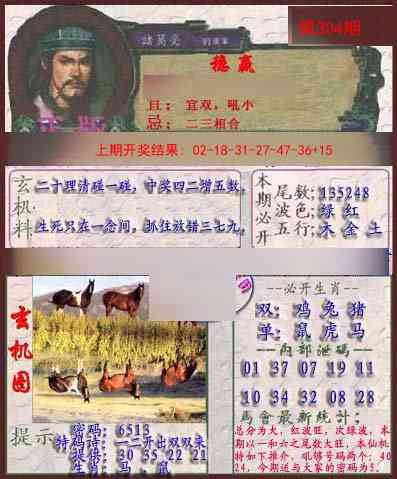 第304期
諸葛亮
的傳家
稳赢
宜双，吼小
忌：二三相合
上期开奖结果：02-18-31-27-47-36+15
玄机料
二十理清碰一碰，中奖四二增五数，
生死只在一念间，抓住放错三七九，
本期必开
尾数：135248
波色：绿 红
五行：木 金 土
玄机图
--必开生肖--
双：鸡 兔 猪
单：鼠 虎 马
--内部泄码--
01 37 07 19 11
10 34 32 08 28
馬會最新統計：
总分为大，红波旺，次绿波，本
期以一和六之尾数大旺，本仙机
特如下推介，吼够号码两个：40
24，今期送与大家的密码为5．
提示
密码：6513
特码诗：一二开出双双来
提供：30 35 22 21
生肖：马．鼠